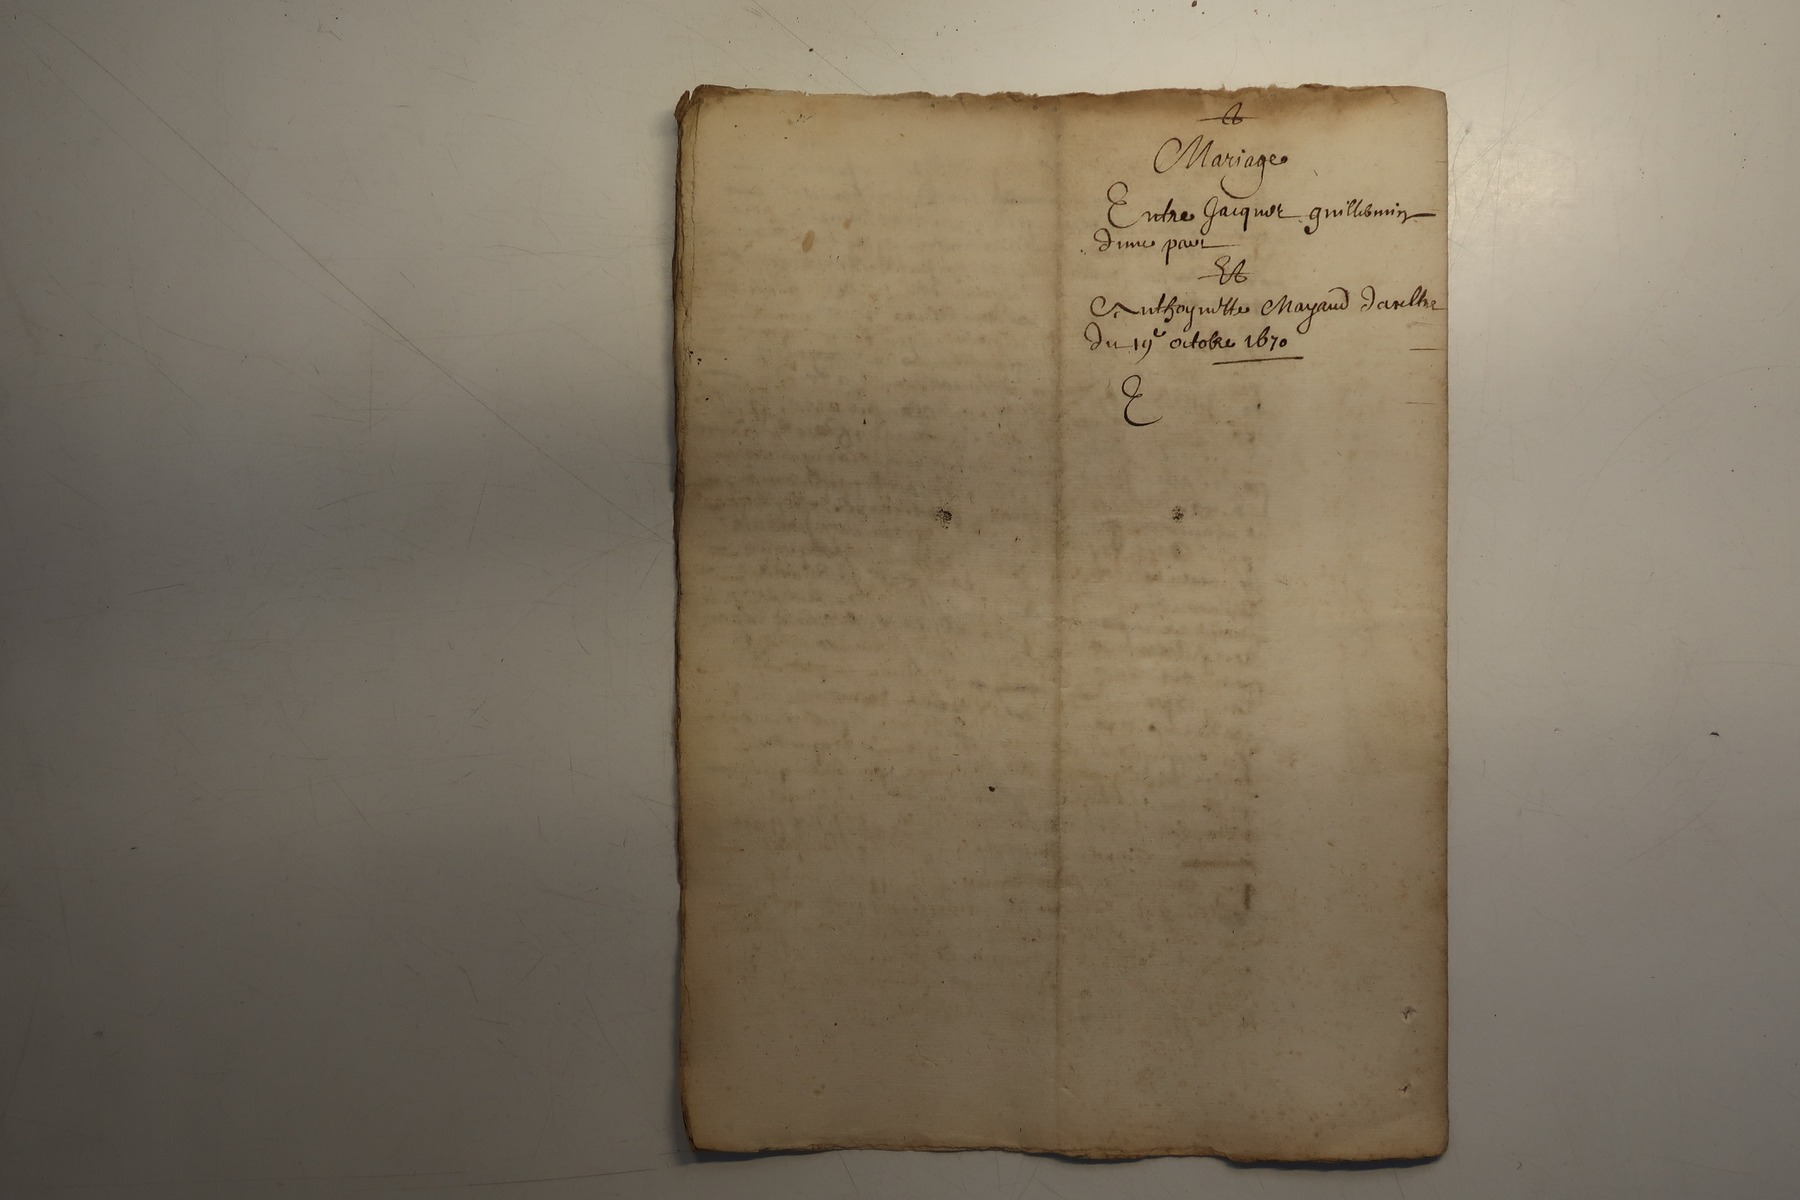 Mariage
Entre Jacques guillemin
dune part
Et
Anthoynette Mayaud daultre
du 19e octobre 1670
E